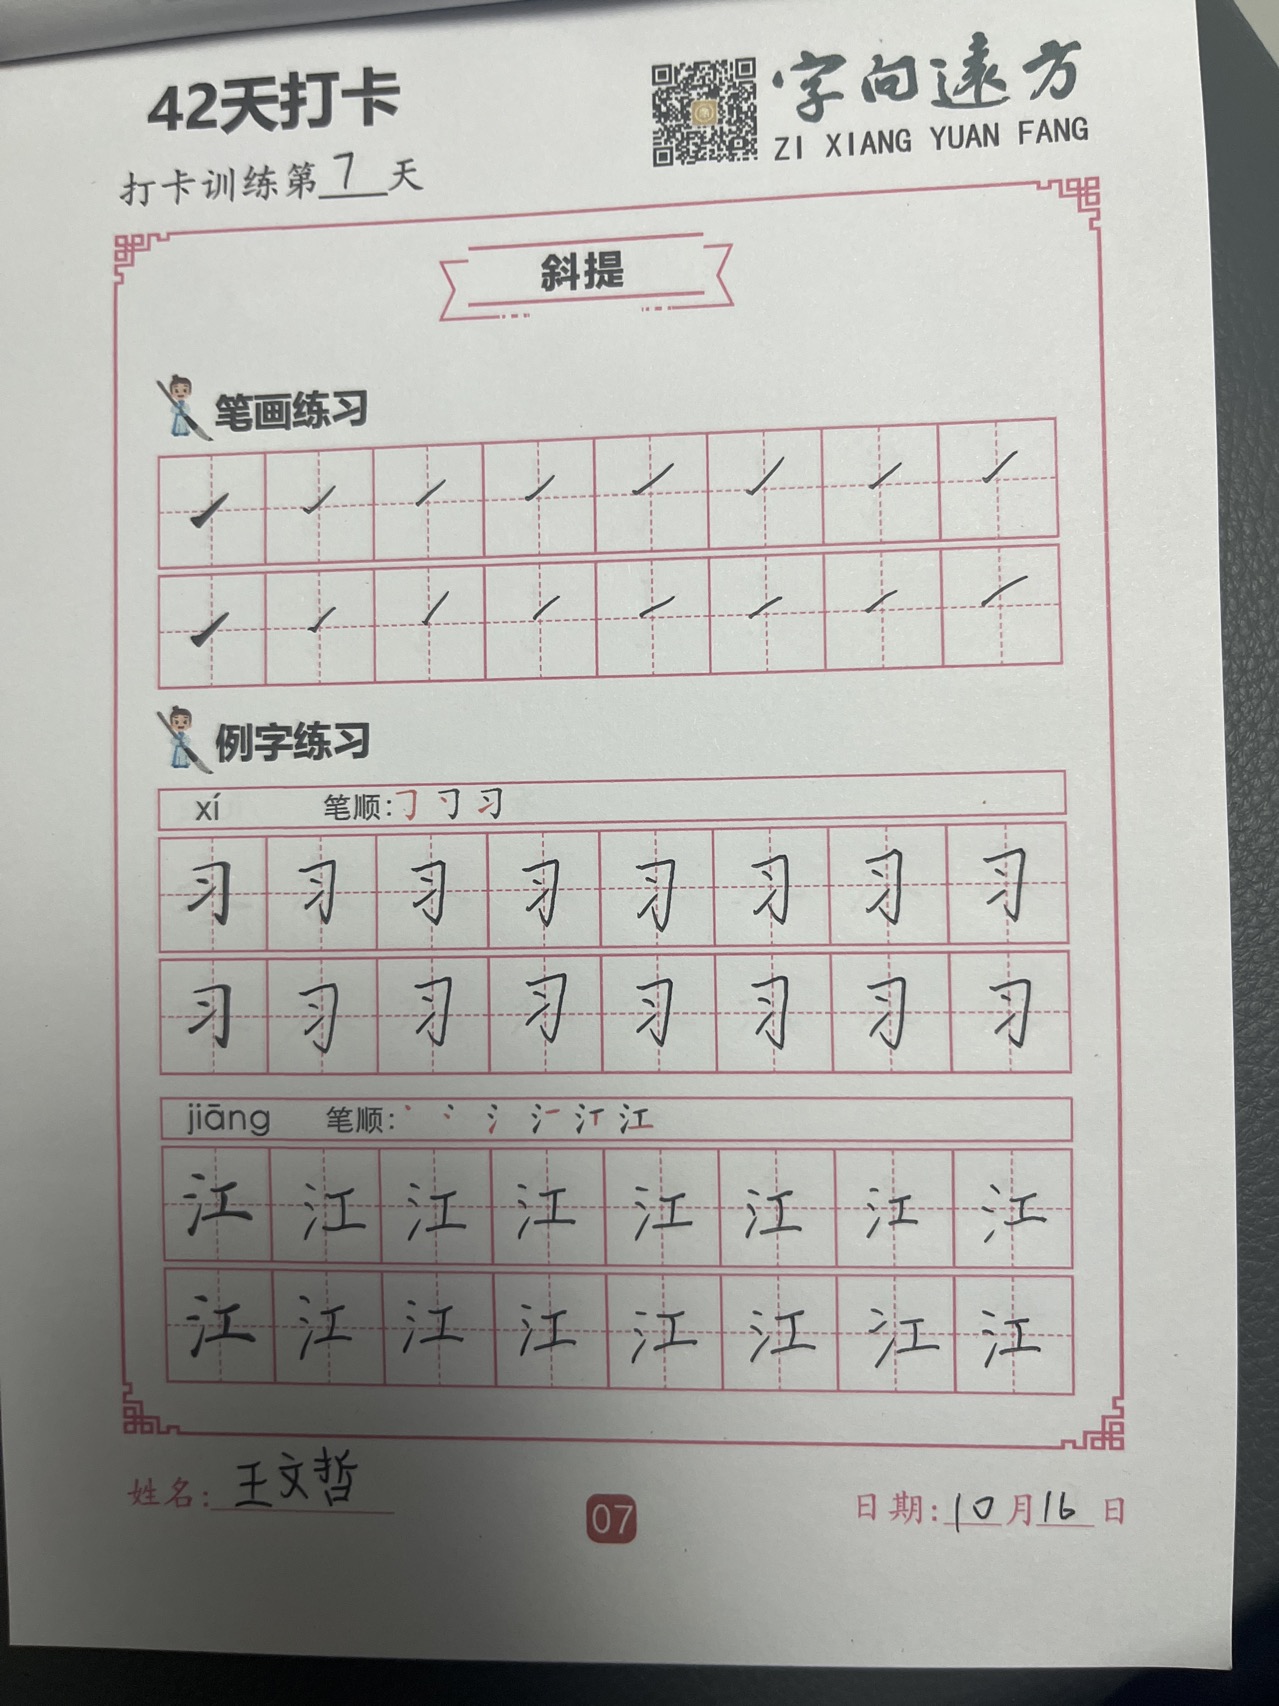 42天打卡
字向遠方
ZI XIANG YUAN FANG
打卡训练第7天
斜提
笔画练习
例字练习
xí 笔顺:
习 习 习 习 习 习 习 习
习 习 习 习 习 习 习 习
jiāng 笔顺: 江
江 江 江 江 江 江 江 江
江 江 江 江 江 江 江 江
姓名: 王文哲
07
日期: 10月16日